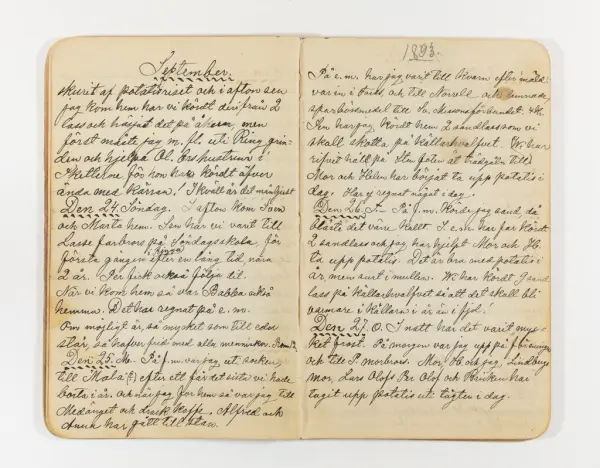 September.
skurit af potatisriset och i afton sen
jag kom hem har vi kördt derifrån 2
lass och höjst det på åkern, men
först måste jag m. fl. uti Ring grin-
den och hjelpa Ol. Ers hustrun i
för hon har kördt öfver
ända med kärran! I kväll är det månljust
Den 24. Söndag. I afton kom Sven
och Marta hem. Sen har vi varit till
Lasse farbrors på Söndagsskola, för
första gången efter en lång tid, nära
2 år. Per fick också följa til.
När vi kom hem så var Babba också
hemma. Det har regnat på e. m.
Om möjligt är, så mycket som till eder
står, så hafver frid med alla menniskor. Rom. 12.
Den 25. M. På f. m. var jag ut socken
till Mala efter ett får det sista vi hade
borta i år. och när jag for hem så var jag till
och drack kaffe. Alfred och
Anna har gått till stan.
1893.
På e. m. har jag varit till Kvarn efter mäld:
var in i och till Norvell och lemnade
sparbössmedel till H. Missionsförbundet. 4 K.
Sen har jag kördt hem 2 sandlass som vi
skall skotta på källarhvalfvet. W. har
rifvit häll på åt trädgåln till
Mor och Helen har börjat ta upp potatis i
dag. Har ej regnat något i dag.
Den 26. T. På f. m. körde jag sand, då
blåste det vare kallt. I e. m. har far kördt
2 sandlass och jag har hjelpt Mor och H.
ta upp potatis. Det är bra med potatis i
år, men surt i mullen. Wi har kördt 9 sand
lass på källarhvalfvet så att det skall bli
varmare i källarn i år än i fjol!
Den 27. O. I natt har det varit myc-
ket frost. På morgon var jag upp på
och till P. morbrors. Mor, H. och jag, Lindbergs
mor, Lars Olofs Per Olof och har
tagit upp potatis uti tägten i dag.